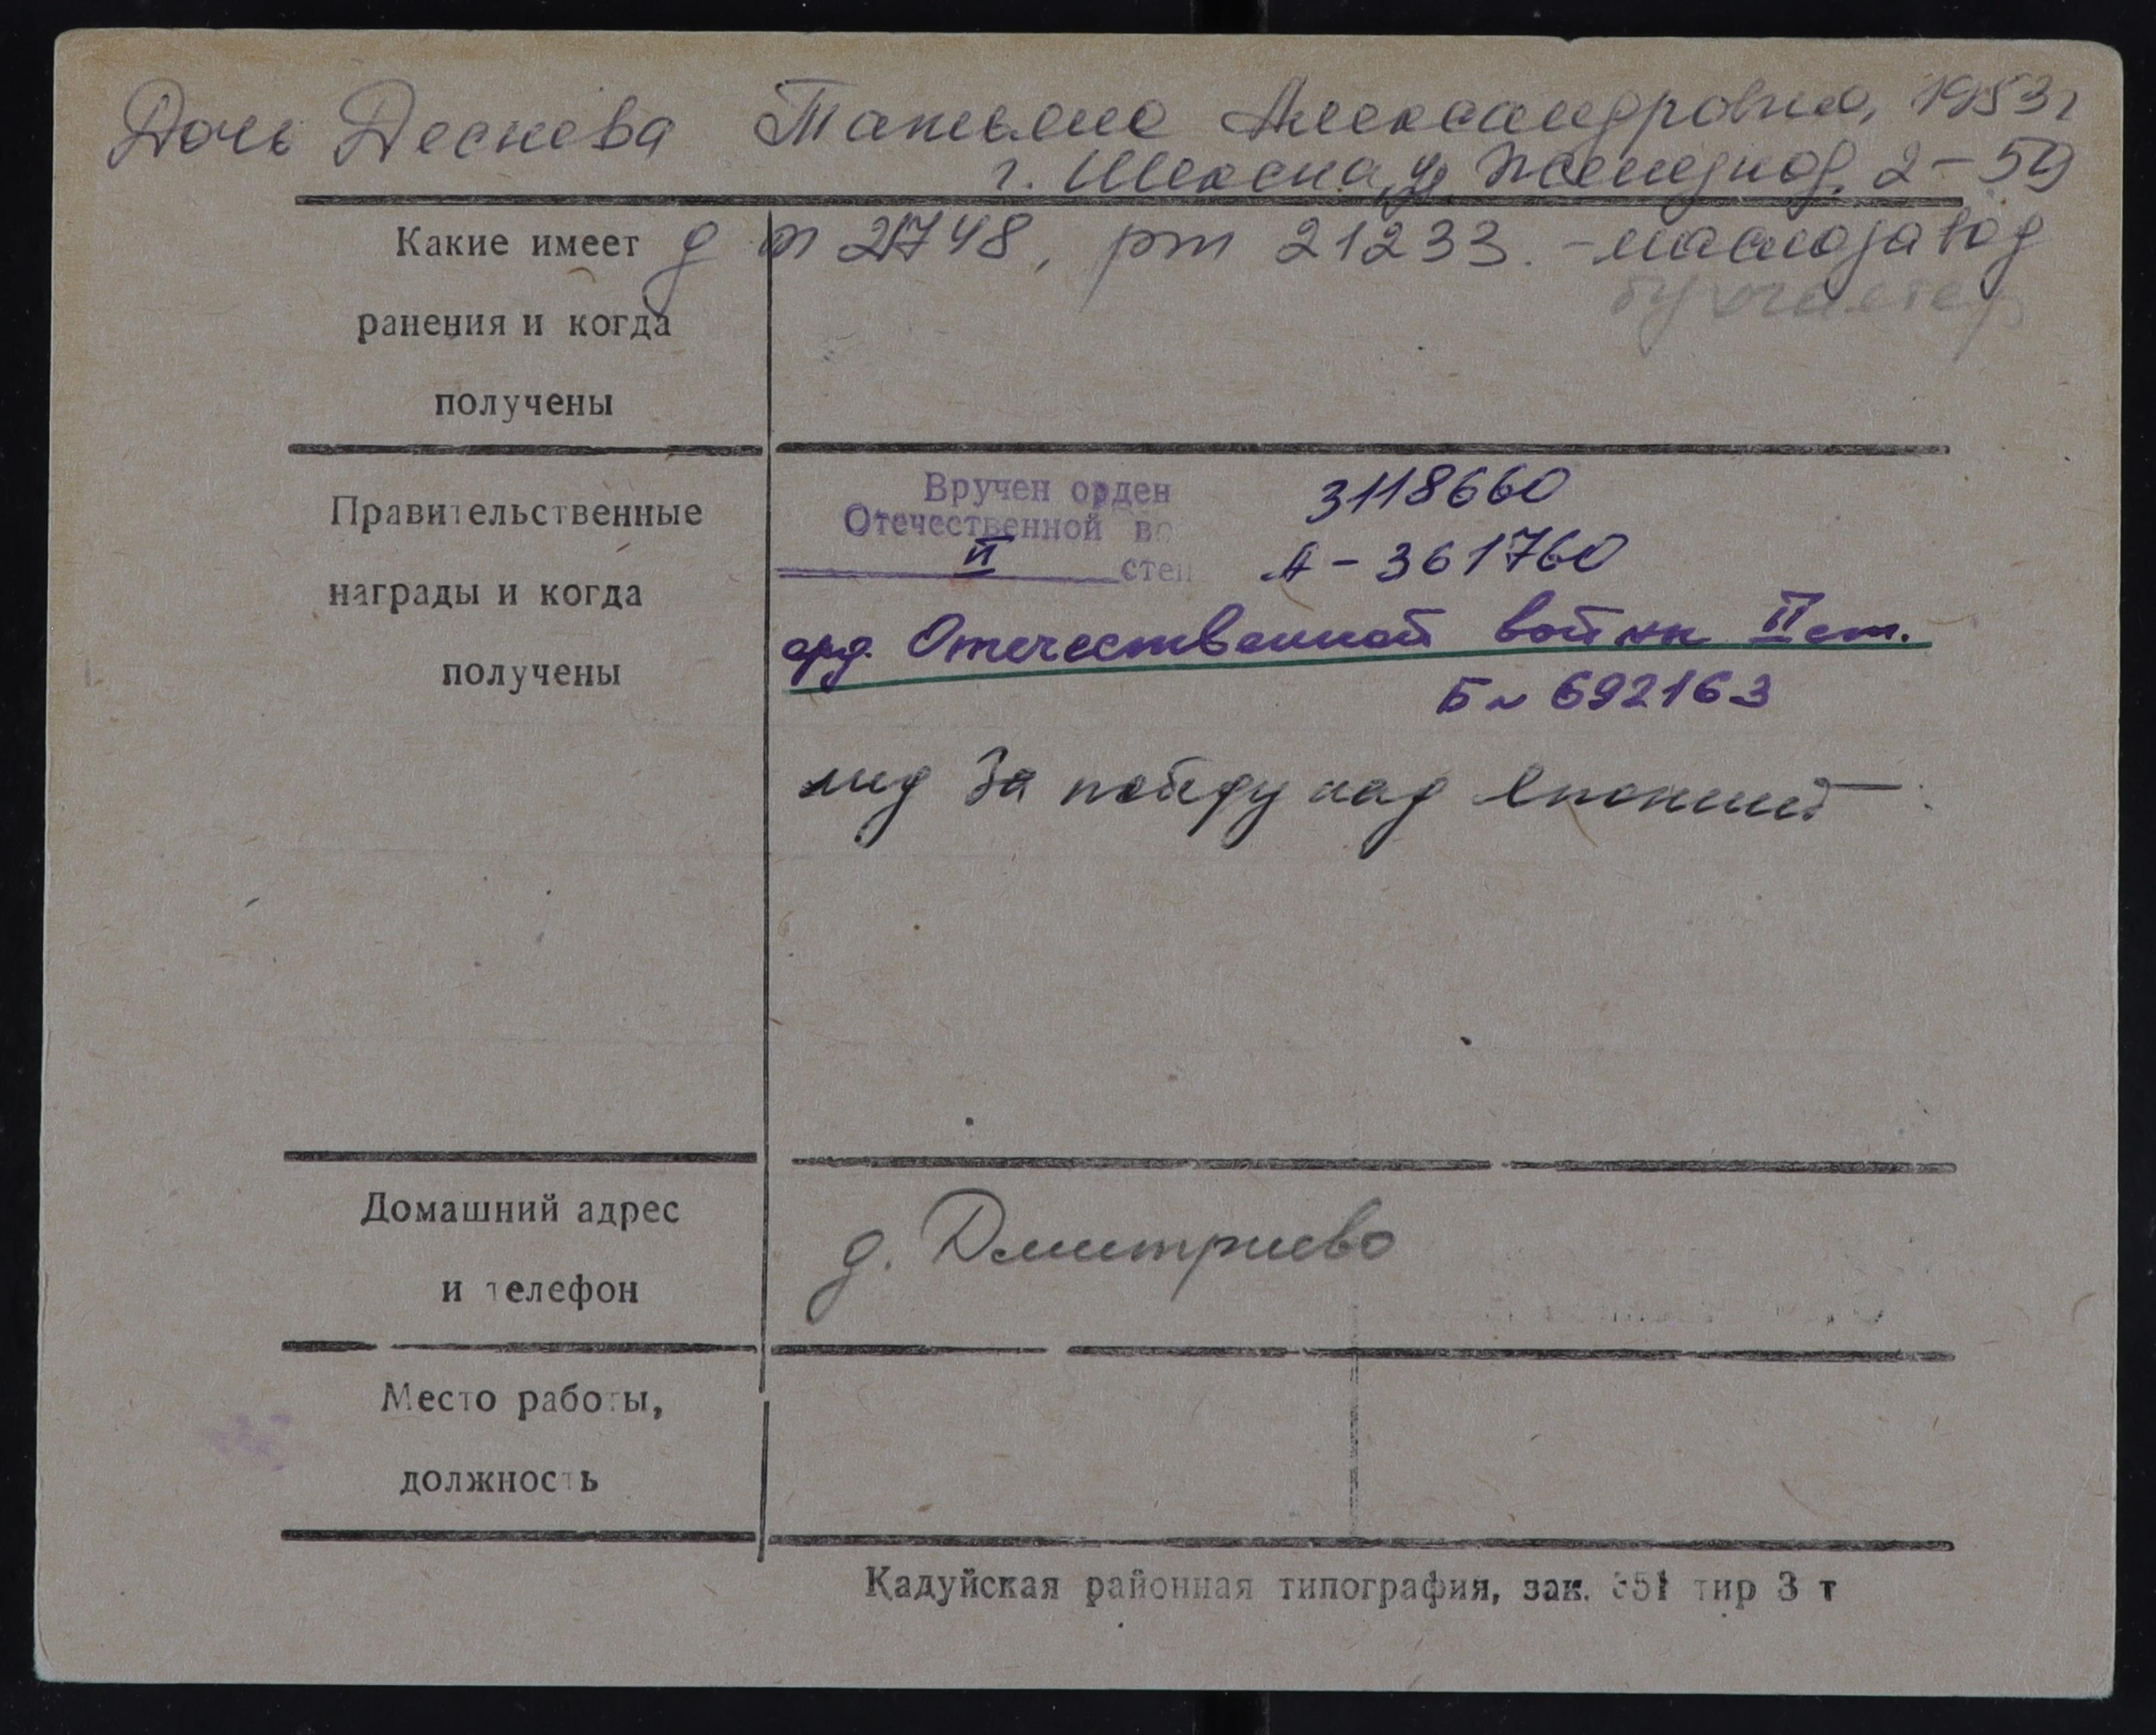 Дочь Деснева Татьяна Александровна, 1953г
г. Шексна, ул Железнод. 2-59
Какие имеет
д т 21748, рт 21233. - маслозавод
бухгалтер
ранения и когда
получены
Правительственные
награды и когда
получены
Вручен орден
Отечественной во
II степ
3118660
А-361760
орд. Отечественной войны II ст.
Б № 692163
мед За победу над Японией
Домашний адрес
и телефон
д. Дмитриево
Место работы,
должность
Кадуйская районная типография, зак. 351 тир 3 т